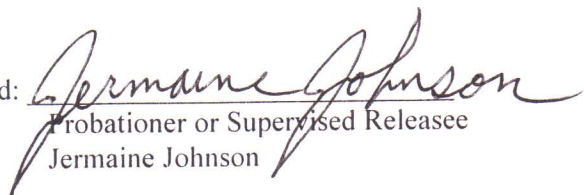 d: Jermaine Johnson
Probationer or Supervised Releasee
Jermaine Johnson